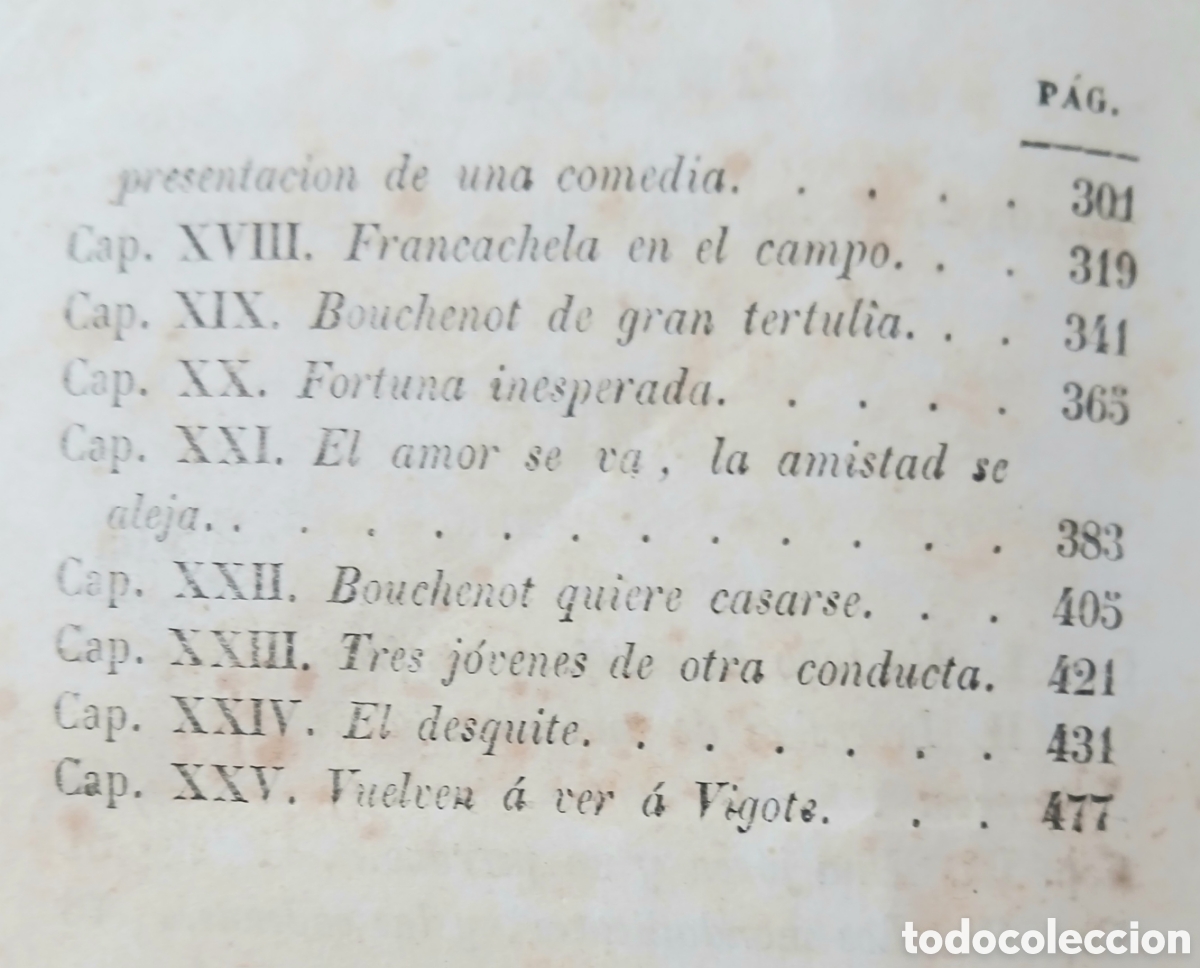 PÁG.
presentacion de una comedia. . . . . 301
Cap. XVIII. Francachela en el campo. . . 319
Cap. XIX. Bouchenot de gran tertulia. . . 341
Cap. XX. Fortuna inesperada. . . . . 365
Cap. XXI. El amor se va, la amistad se
aleja. . . . . . . . . . . . . 383
Cap. XXII. Bouchenot quiere casarse. . . 405
Cap. XXIII. Tres jóvenes de otra conducta. 421
Cap. XXIV. El desquite. . . . . . . 431
Cap. XXV. Vuelven á ver á Vigote. . . 477
todocoleccion